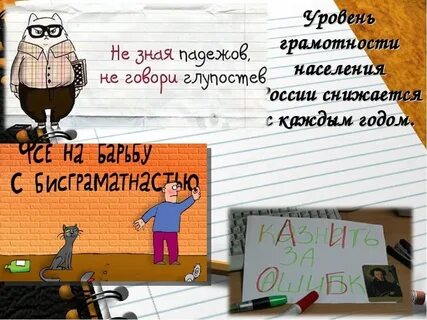 Не зная падежов,
не говори глупостев
Уровень
грамотности
населения
России снижается
с каждым годом.
Фсе на барьбу
с бисграматнастью
КАЗНИТЬ
ЗА
ОШИБК